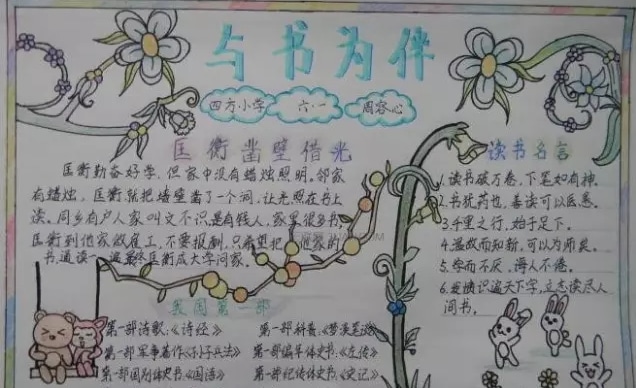 与书为伴
四方小学 六·一 周容心
匡衡凿壁借光
匡衡勤奋好学,但家中没有蜡烛照明。邻家
有蜡烛,匡衡就把墙壁凿了一个洞,让光照在书上
读。同乡有户人家叫文不识,是有钱人,家里很多书,
匡衡到他家做雇工,不要报酬,只希望把他家的
书,通读一遍,最终匡衡成大学问家。
我国第一部
第一部诗歌:《诗经》
第一部军事著作《孙子兵法》
第一部国别体史书:《国语》
第一部科普:《梦溪笔谈》
第一部编年体史书:《左传》
第一部纪传体史书:《史记》
读书名言
1.读书破万卷,下笔如有神。
2.书犹药也,善读可以医愚。
3.千里之行,始于足下。
4.温故而知新,可以为师矣。
5.学而不厌,诲人不倦。
6.发愤识遍天下字,立志读尽人
间书。